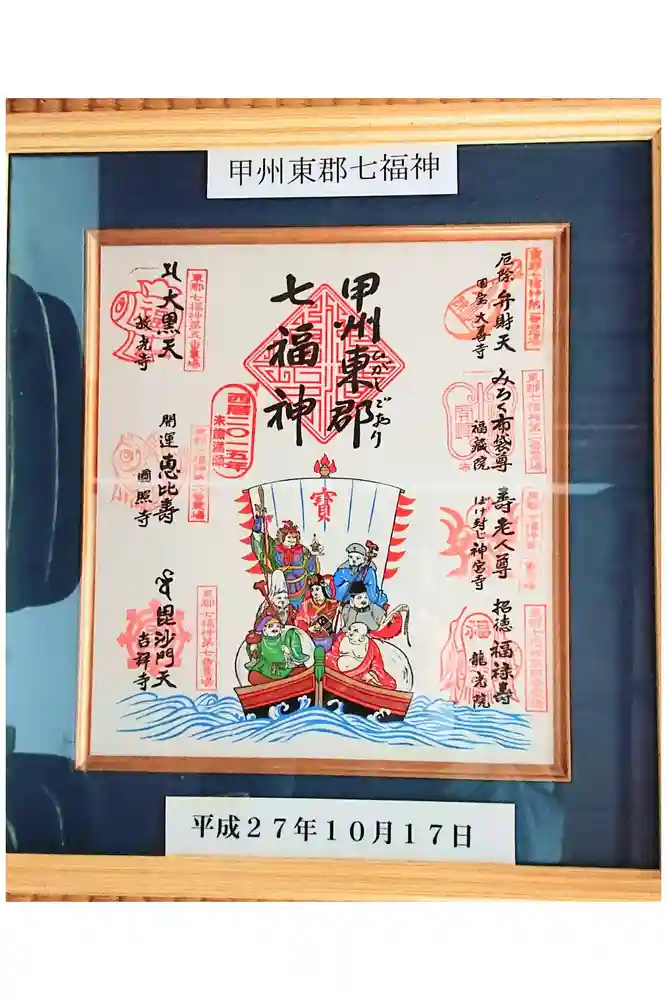 甲州東郡七福神
甲州東郡
ひがしごおり
七福神
西暦二〇一五年
厄除 弁財天
大善寺
みろく布袋尊
福蔵院
寿老人尊
ぼけ封じ 神宮寺
招徳 福禄寿
龍光院
大黒天
放光寺
開運 恵比寿
圓照寺
毘沙門天
吉祥寺
寳
福
東郡七福神第七番霊場
平成27年10月17日